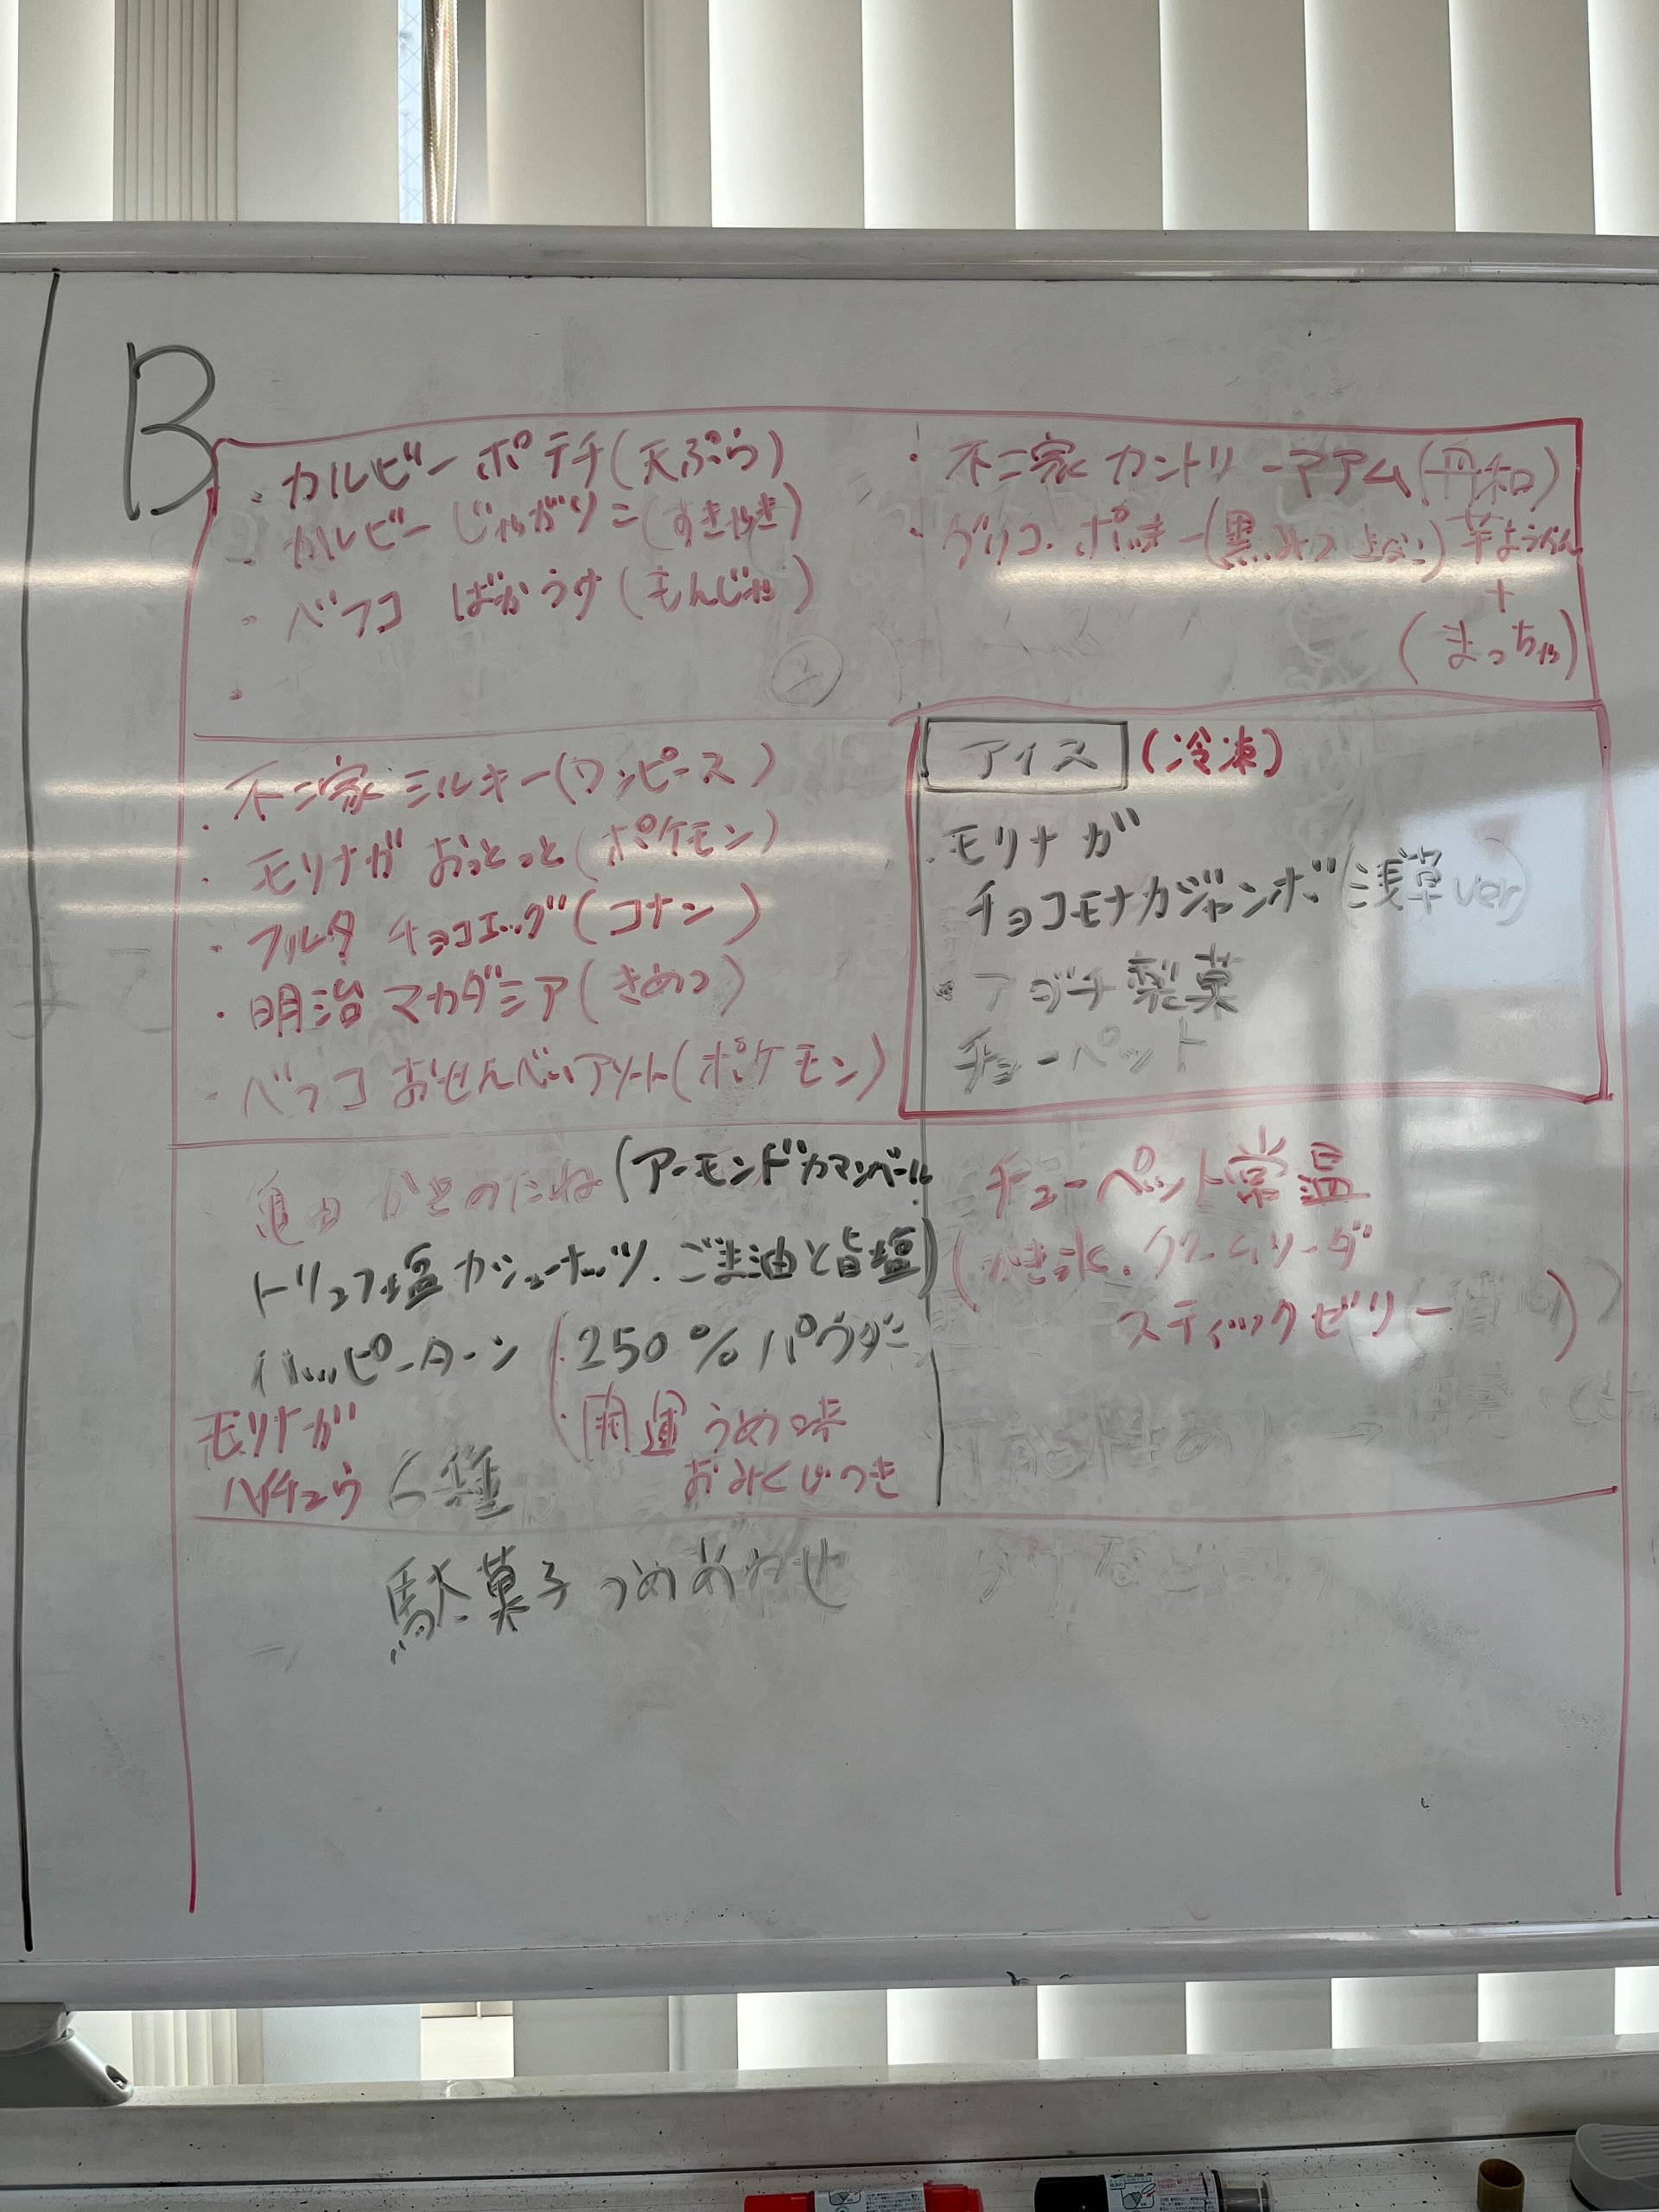 B
・カルビーポテチ(天ぷら)
・カルビーじゃがりこ(すきやき)
・ベフコ ばかうけ(もんじゃ)
・
・不二家カントリーマアム(丹和)
・グリコ・ポッキー(黒みつ)芋ようかん
+
(まっちゃ)
・不二家ミルキー(ワンピース)
・モリナガ おっとっと(ポケモン)
・フルタ チョコエッグ(コナン)
・明治 マカダミア(きめつ)
・ベフコ おせんべいアソート(ポケモン)
アイス(冷凍)
・モリナガ
チョコモナカジャンボ(浅草ver)
・アダチ製菓
チューペット
亀田 かきのたね(アーモンドカマンベール
トリュフ塩カシューナッツ.ごま油と旨塩)
ハッピーターン(・250%パウダー
・開運うめ味
おみくじつき
モリナガ
ハイチュウ 6種
チューペット常温
(かき氷.クリームソーダ
スティックゼリー)
可能性あり→
駄菓子つめあわせ